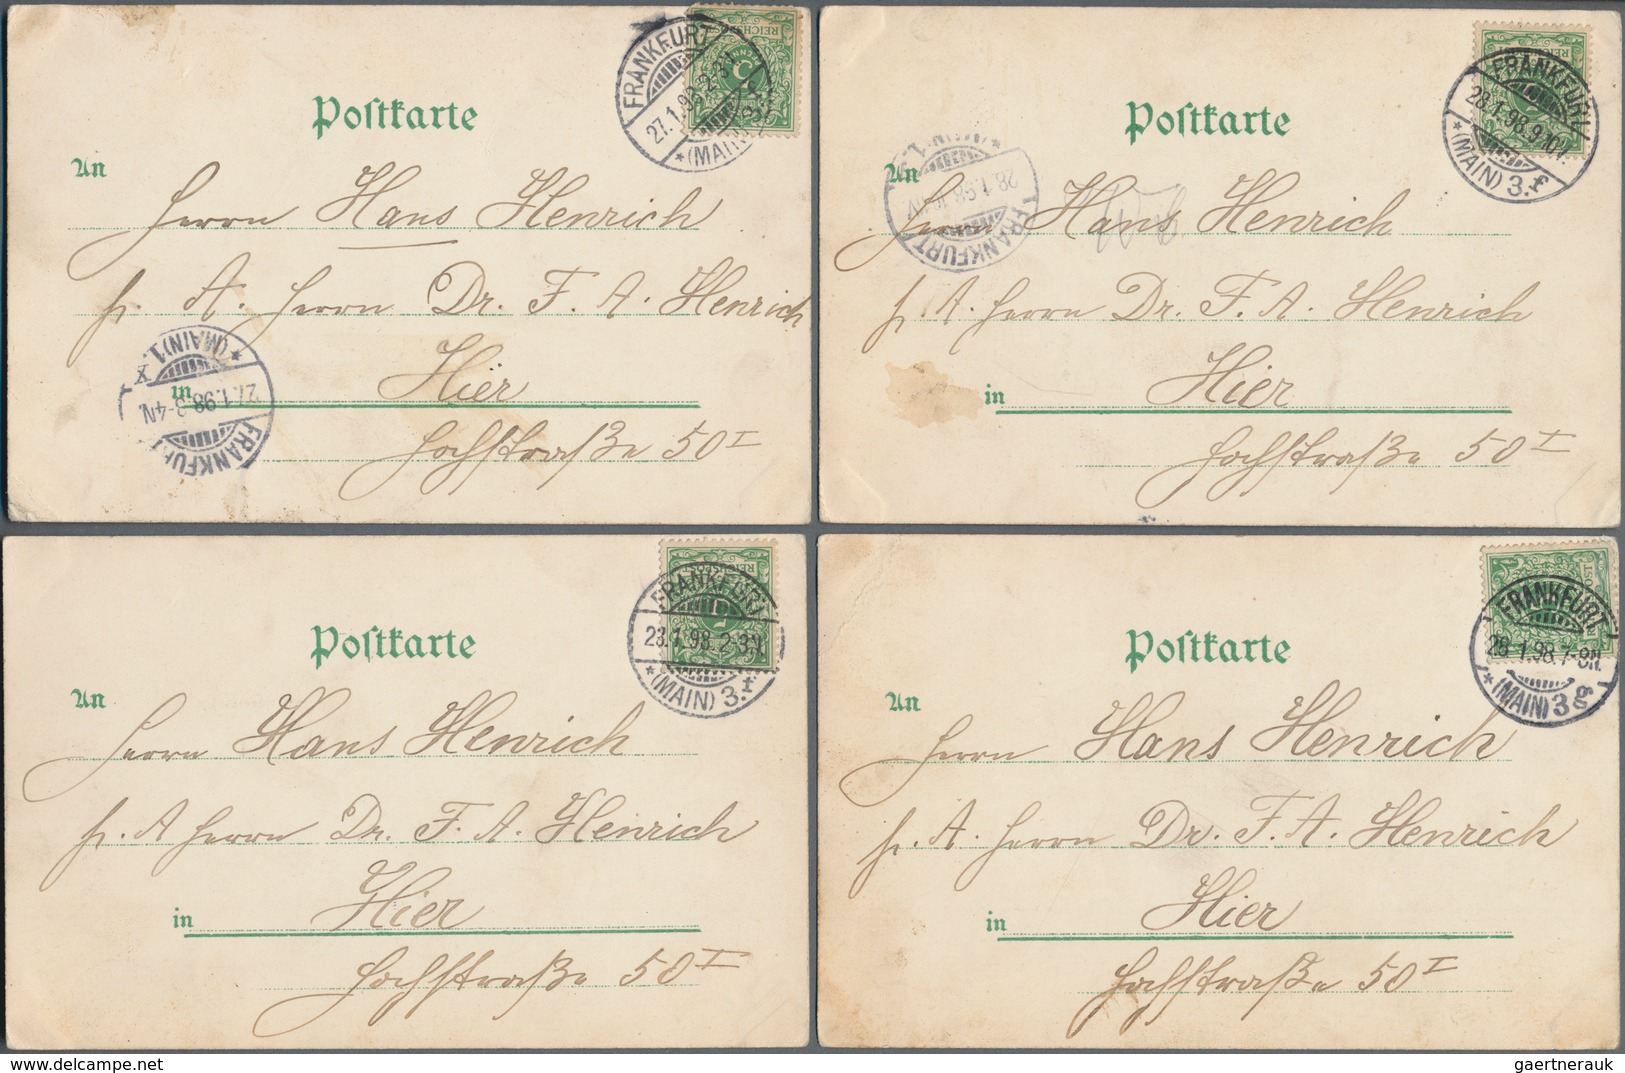 FRANKFURT
27.1.98.2-3N.
*(MAIN)
REICHSPOST
Postkarte
An
Herrn Hans Henrich
p. A. Herrn Dr. F. A. Henrich
in Hier
Hochstraße 50 I
FRANKFURT
27.1.98.3-4N.
*(MAIN)1.
FRANKFURT
28.1.98.9-10V.
*(MAIN) 3.f
Postkarte
An
Herrn Hans Henrich
p. A. Herrn Dr. F. A. Henrich
in Hier
Hochstraße 50 I
FRANKFURT
28.1.98
*(MAIN)1.
FRANKFURT
23.1.98.2-3N.
*(MAIN) 3.f
Postkarte
An
Herrn Hans Henrich
p. A Herrn Dr. F. A. Henrich
in Hier
Hochstraße 50 I
FRANKFURT
26.1.98.7-8N.
*(MAIN) 3 g
Postkarte
An
Herrn Hans Henrich
p. A. Herrn Dr. F. A. Henrich
in Hier
Hochstraße 50 I
www.delcampe.net
gaertnerauk